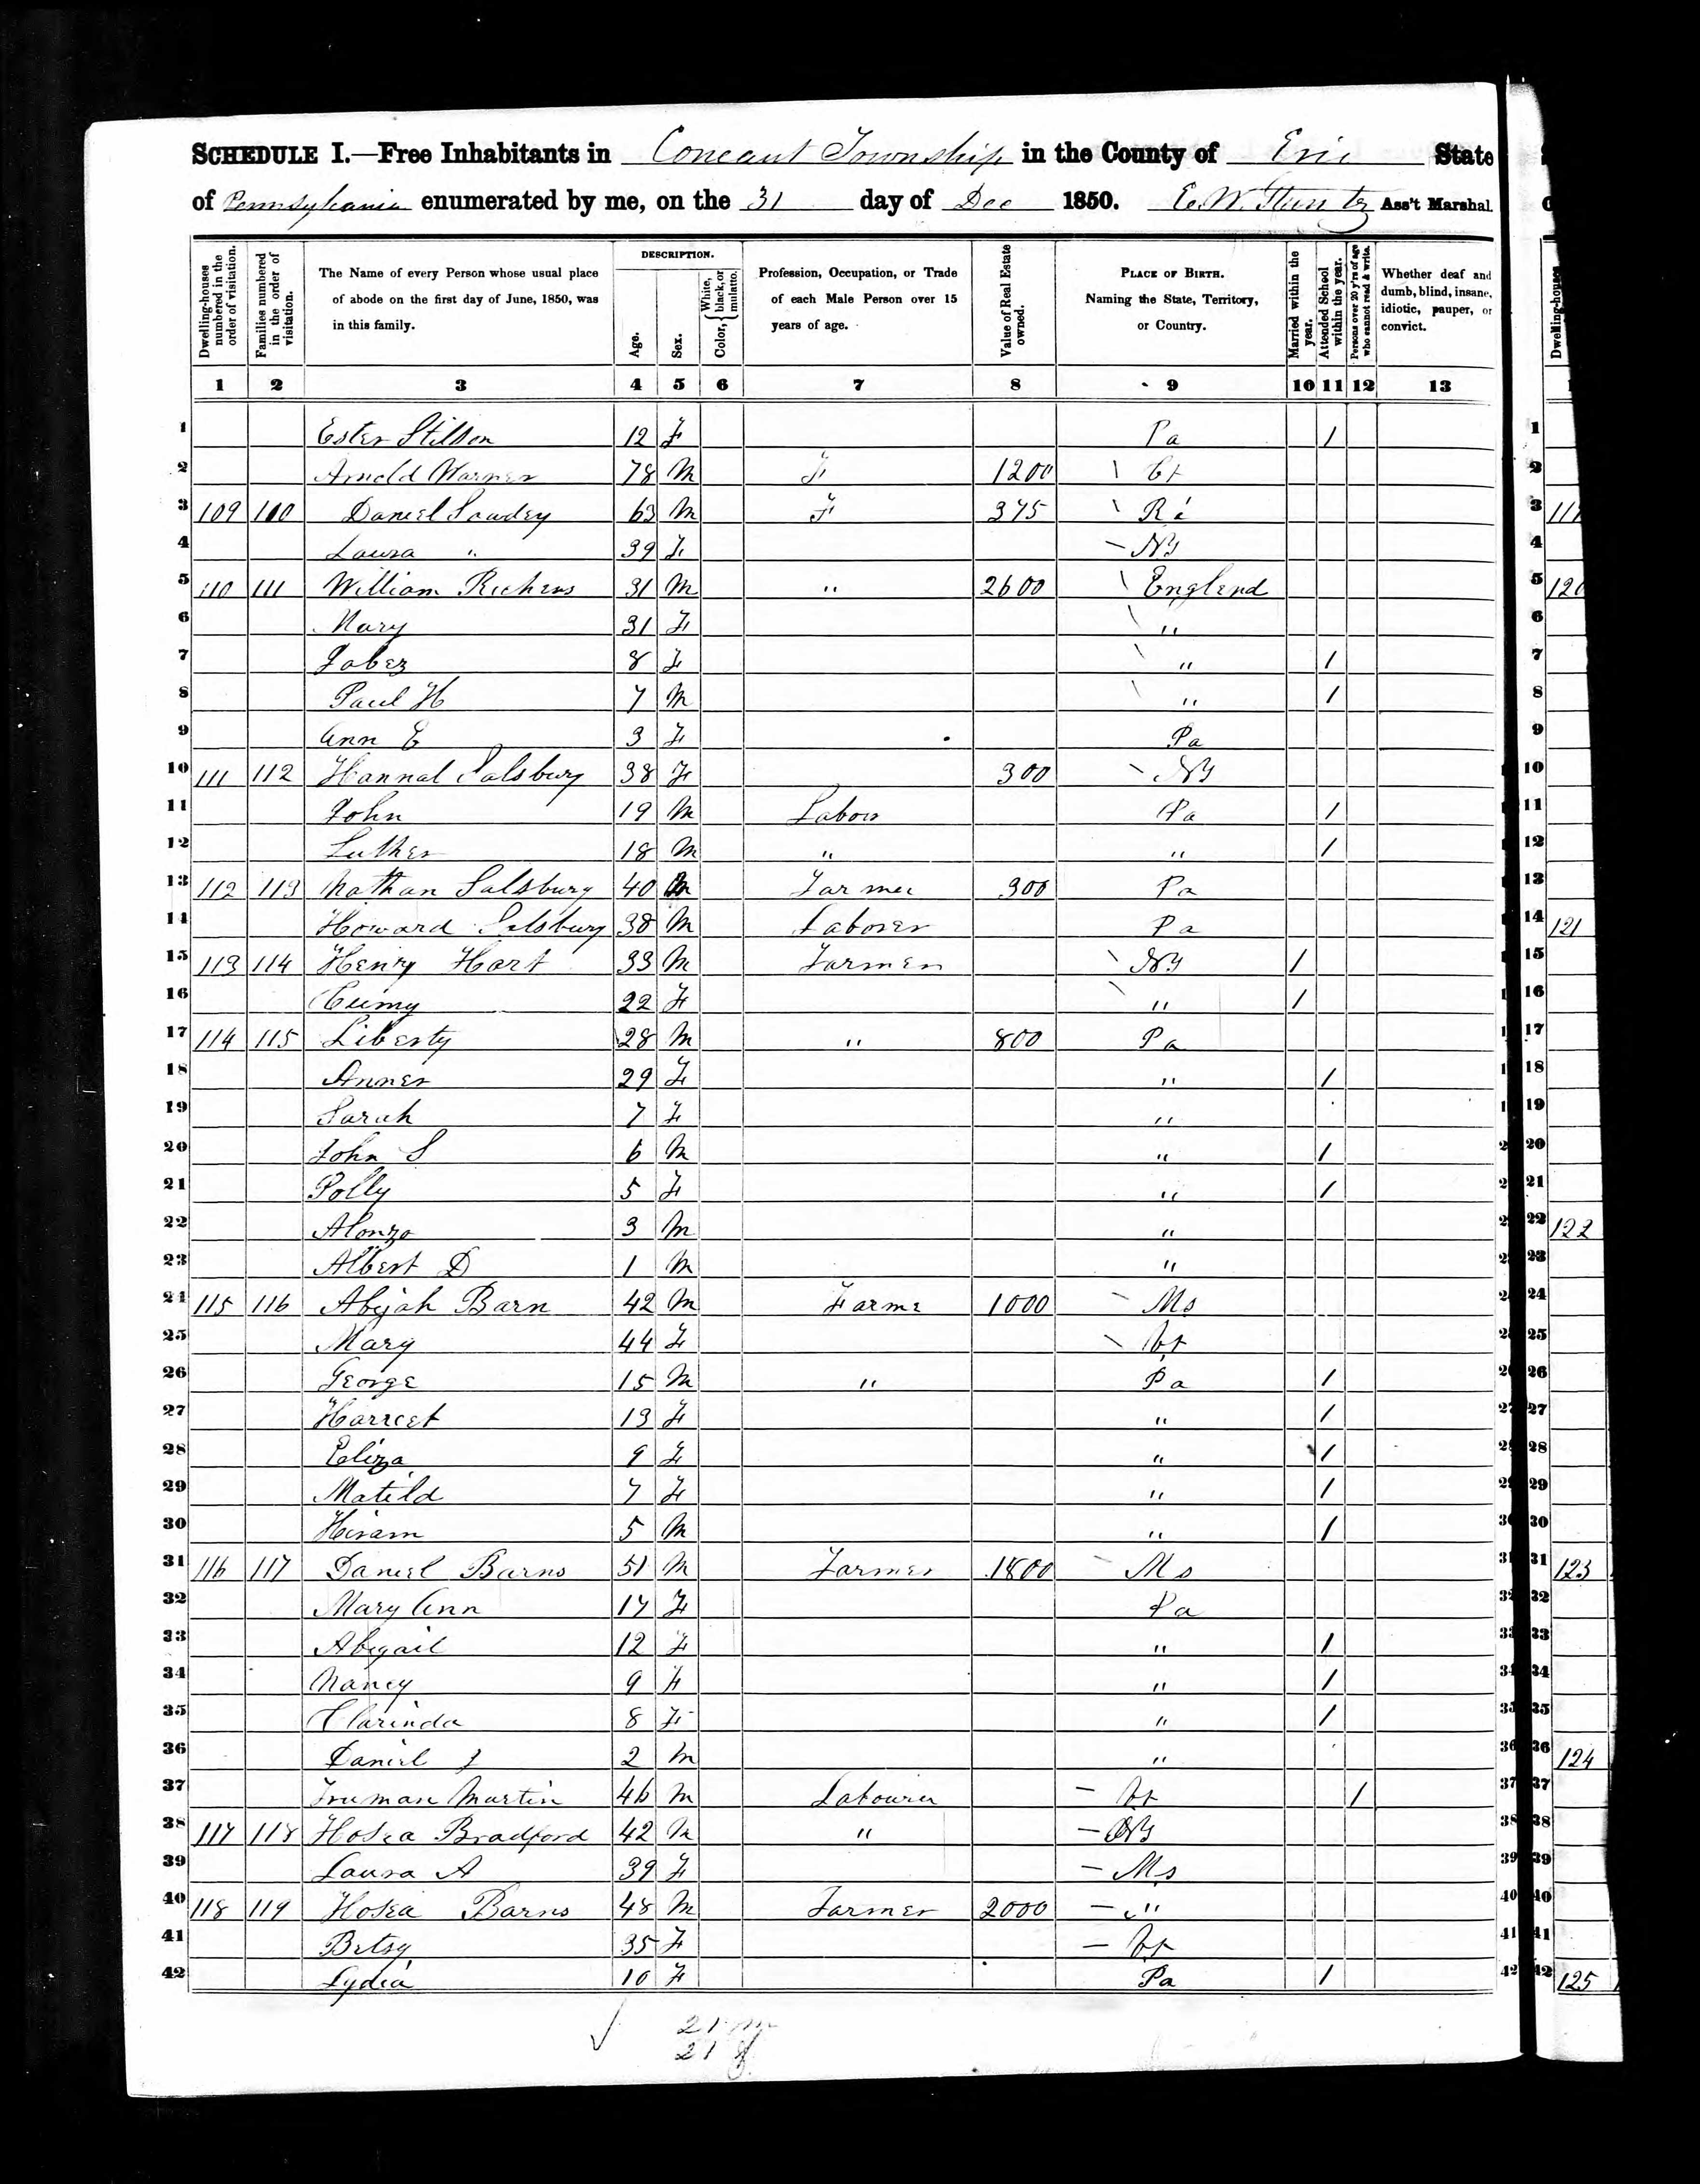 SCHEDULE I.—Free Inhabitants in Coneaut Township in the County of Erie State
of Pennsylvania enumerated by me, on the 31 day of Dec 1850. Ass't Marshal.
Dwelling-houses numbered in the order of visitation.
Families numbered in the order of visitation.
The Name of every Person whose usual place of abode on the first day of June, 1850, was in this family.
DESCRIPTION.
Age.
Sex.
Color, { White, black, or mulatto.
Profession, Occupation, or Trade of each Male Person over 15 years of age.
Value of Real Estate owned.
PLACE OF BIRTH. Naming the State, Territory, or Country.
Married within the year.
Attended School within the year.
Persons over 20 y'rs of age who cannot read & write.
Whether deaf and dumb, blind, insane, idiotic, pauper, or convict.
1 2 3 4 5 6 7 8 9 10 11 12 13
1 Ester Stilson 12 F Pa 1
2 Arnold Warner 78 M F 1200 Ct
3 109 110 Daniel Sawdey 63 M F 375 Ri 3
4 Laura " 39 F NY 4
5 110 111 William Richens 31 M " 2600 Englend 5 120
6 Mary 31 F " 6
7 Jabez 8 F " 1 7
8 Paul H 7 M " 1 8
9 Ann E 3 F Pa 9
10 111 112 Hannal Salsbury 38 F 300 NY 10
11 John 19 M Labor Pa 1 11
12 Luther 18 M " " 1 12
13 112 113 Nathan Salsbury 40 M Farmer 300 Pa 13
14 Howard Salsbury 38 M Laborer Pa 14 121
15 113 114 Henry Hart 33 M Farmer NY 1 15
16 22 F " 1 16
17 114 115 Liberty 28 M " 800 Pa 17
18 Anner 29 F " 1 18
19 Sarah 7 F " 19
20 John S 6 M " 1 20
21 Polly 5 F " 1 21
22 Alonzo 3 M " 22 122
23 Albert D 1 M " 23
24 115 116 Abijah Barn 42 M Farme 1000 Ms 24
25 Mary 44 F Vt 25
26 George 15 M " Pa 1 26
27 Harriet 13 F " 1 27
28 Eliza 9 F " 1 28
29 Matild 7 F " 1 29
30 Hiram 5 M " 1 30
31 116 117 Daniel Barns 51 M Farmer 1800 Ms 31 123
32 Mary Ann 17 F Pa 32
33 Abigail 12 F " 1 33
34 Nancy 9 F " 1 34
35 Clarinda 8 F " 1 35
36 Daniel J 2 M " 36 124
37 Truman Martin 46 M Labourer Vt 1 37
38 117 118 Hosea Bradford 42 M " NY 38
39 Laura A 39 F Ms 39
40 118 119 Hosea Barns 48 M Farmer 2000 " 40
41 Betsy 35 F Vt 41
42 Lydia 10 F Pa 1 42 125
21 m
21 f